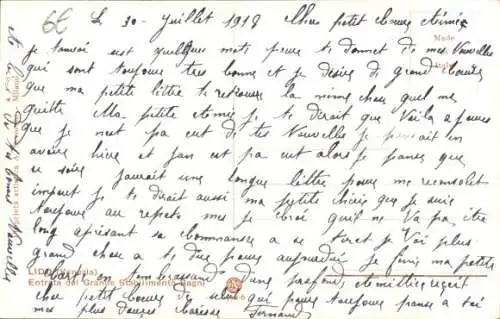 62 L 30 - Juillet 1918 Mon petit coeur chérie
je t'envoi est quelques mots pour te donnet de mes Nouvelles
qui sont toujours tres bonne et je désire de grand coeur
que ma petite lettre te retrouve la même chose quel me
quitte Ma petite je te dirait que Voila 2 jours
que je n'est pa eut de tes Nouvelles je pensait en
avoire hiere et jan est pa eut alors je pense que
se soire j'aurait une longue lettre pour me reconsolet
import je te dirait aussi ma petite chérie que je suis
toujours au repos mes je croi qu'il ne Va pa être
long aprisant sa commance a se tiret je Voi plus
grand chose a te dire pour aujourdui je finis ma petite
en t'embrassant d'une profond et millier reçoit
chere petit coeur de selui qui pour toujours panse a toi
mes plus douces caresse Fernand
de tes bonnes Nouvelles
Made
Italy
LIDO (Venezia)
Entrata del Grande Stabilimento Bagni